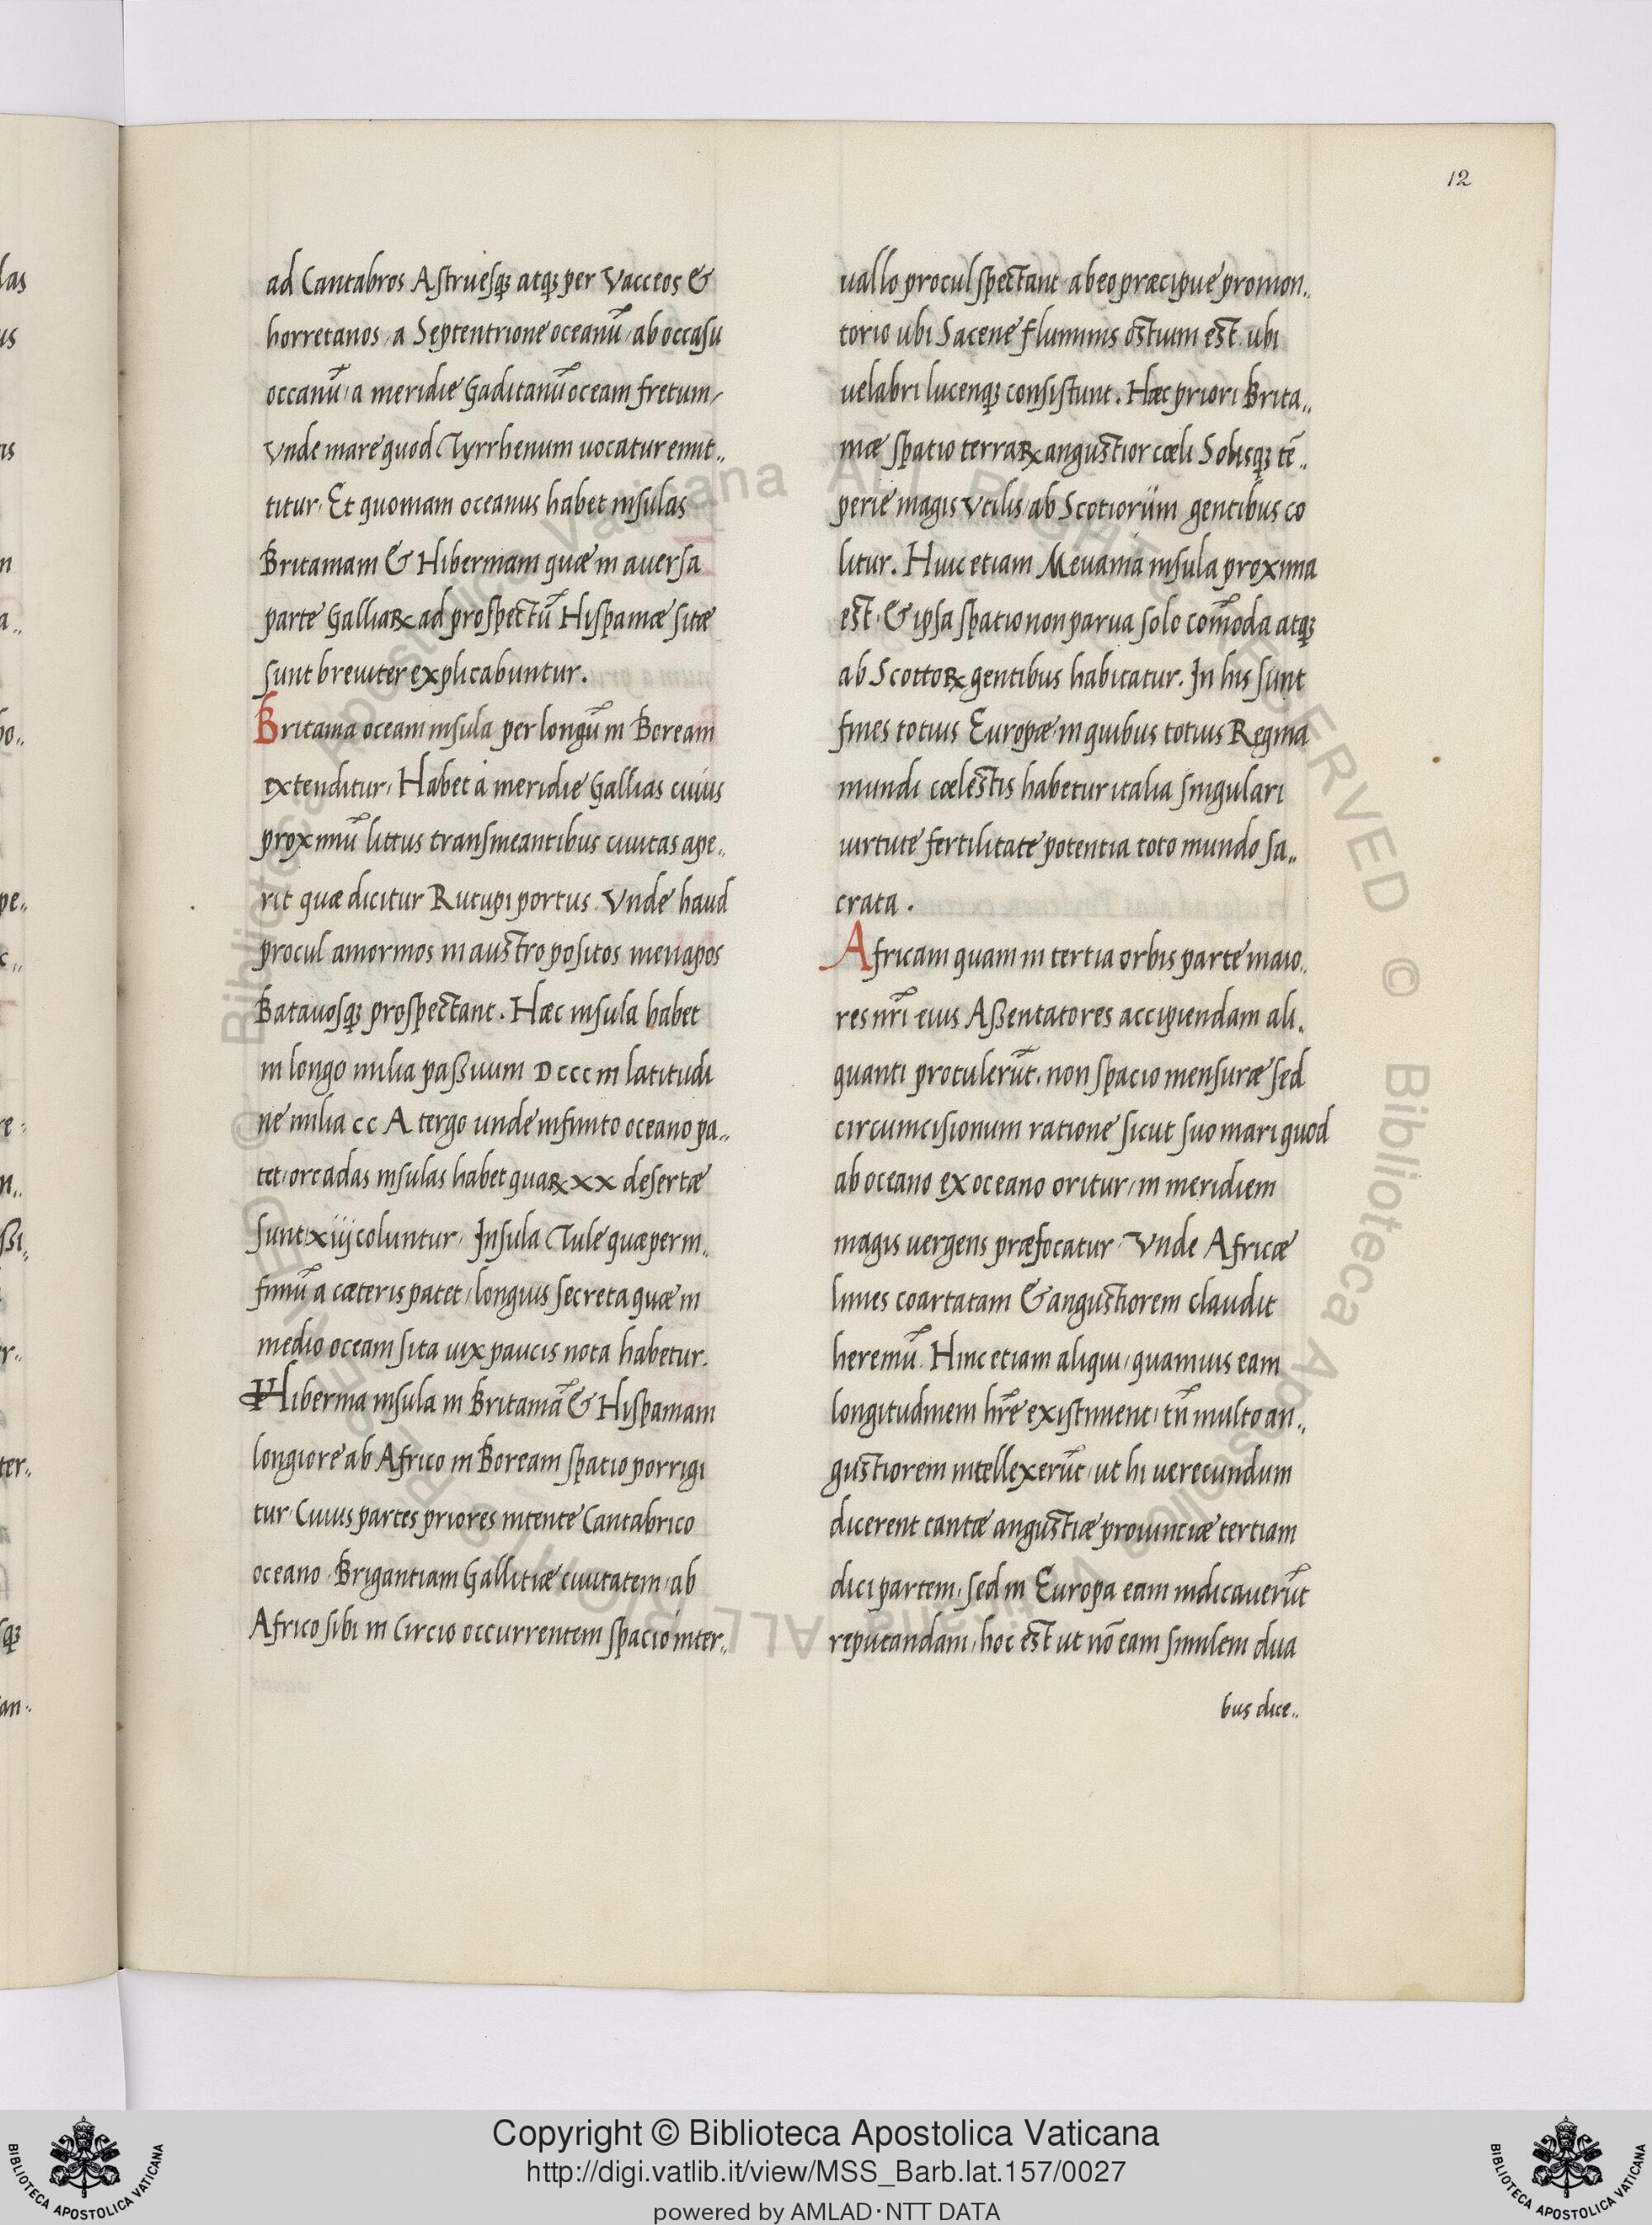 12
ad Cantabros Astruesqꝫ atqꝫ per Vacceos &
horretanos, a Septentrione oceanū, ab occasu
occanū, a meridie Gaditanū oceani fretum,
Vnde mare quod Tyrrhenum uocatur emit„
titur. Et quoniam oceanus habet insulas
Britaniam & Hiberniam quæ in auersa
parte Galliaꝝ ad prospectū Hispaniæ sitæ
sunt breuiter explicabuntur.
Britania oceani insula per longū in Boream
extenditur, Habet a meridie Gallias cuius
proximū littus transmeantibus ciuitas ape„
rit quæ dicitur Rutupi portus. Vnde haud
procul amormos in austro positos menapos
Batauosqꝫ prospectant. Hæc insula habet
in longo milia paßuum DCCC in latitudi
ne milia cc A tergo unde infinito oceano pa„
tet, orcadas insulas habet quaꝝ xx desertæ
sunt xiij coluntur, Insula Tule quæ per in„
finiū a cæteris patet, longius secreta quæ in
medio oceani sita uix paucis nota habetur.
Hibernia insula in Britaniā & Hispaniam
longiore ab Africo in Boream spatio porrigi
tur. Cuius partes priores intente Cantabrico
oceano. Brigantiam Gallitiæ ciuitatem, ab
Africo sibi in Circio occurrentem spacio inter„
uallo procul spectant ab eo præcipue promon„
torio ubi Sacene fluminis ostium est. ubi
uelabri lucenqꝫ consistunt. Hæc priori Brita„
niæ spatio terraꝝ angustior cæli Solisqꝫ tē„
perie magis Vtilis, ab Scotiorum gentibus co
litur. Huic etiam Meuania insula proxima
est, & ipsa spatio non parua solo com̄oda atqꝫ
ab Scottoꝝ gentibus habitatur. In his sunt
fines totius Europæ, in quibus totius Regina
mundi cælestis habetur italia singulari
uirtute fertilitate potentia toto mundo sa„
crata.
Africam quam in tertia orbis parte maio„
res nr̄i eius Aßentatores accipiendam ali„
quanti protulerūt, non spacio mensuræ sed
circumcisionum ratione sicut suo mari quod
ab oceano ex oceano oritur, in meridiem
magis uergens præfocatur. Vnde Africæ
limes coartatam & angustiorem claudit
heremū. Hinc etiam aliqui, quamuis eam
longitudinem hr̄e existiment, tn̄ multo an„
gustiorem intellexerūt, ut hi uerecundum
dicerent tantæ angustiæ prouinciæ tertiam
dici partem, sed in Europa eam indicauerūt
reputandam, hoc est ut nō eam similem dua
bus dice„
las
us
tis
n
a„
bo„
pe„
c„
re
n„
ßi„
r„
ter„
sqꝫ
an
Copyright © Biblioteca Apostolica Vaticana
http://digi.vatlib.it/view/MSS_Barb.lat.157/0027
powered by AMLAD·NTT DATA
BIBLIOTECA APOSTOLICA VATICANA
BIBLIOTECA APOSTOLICA VATICANA